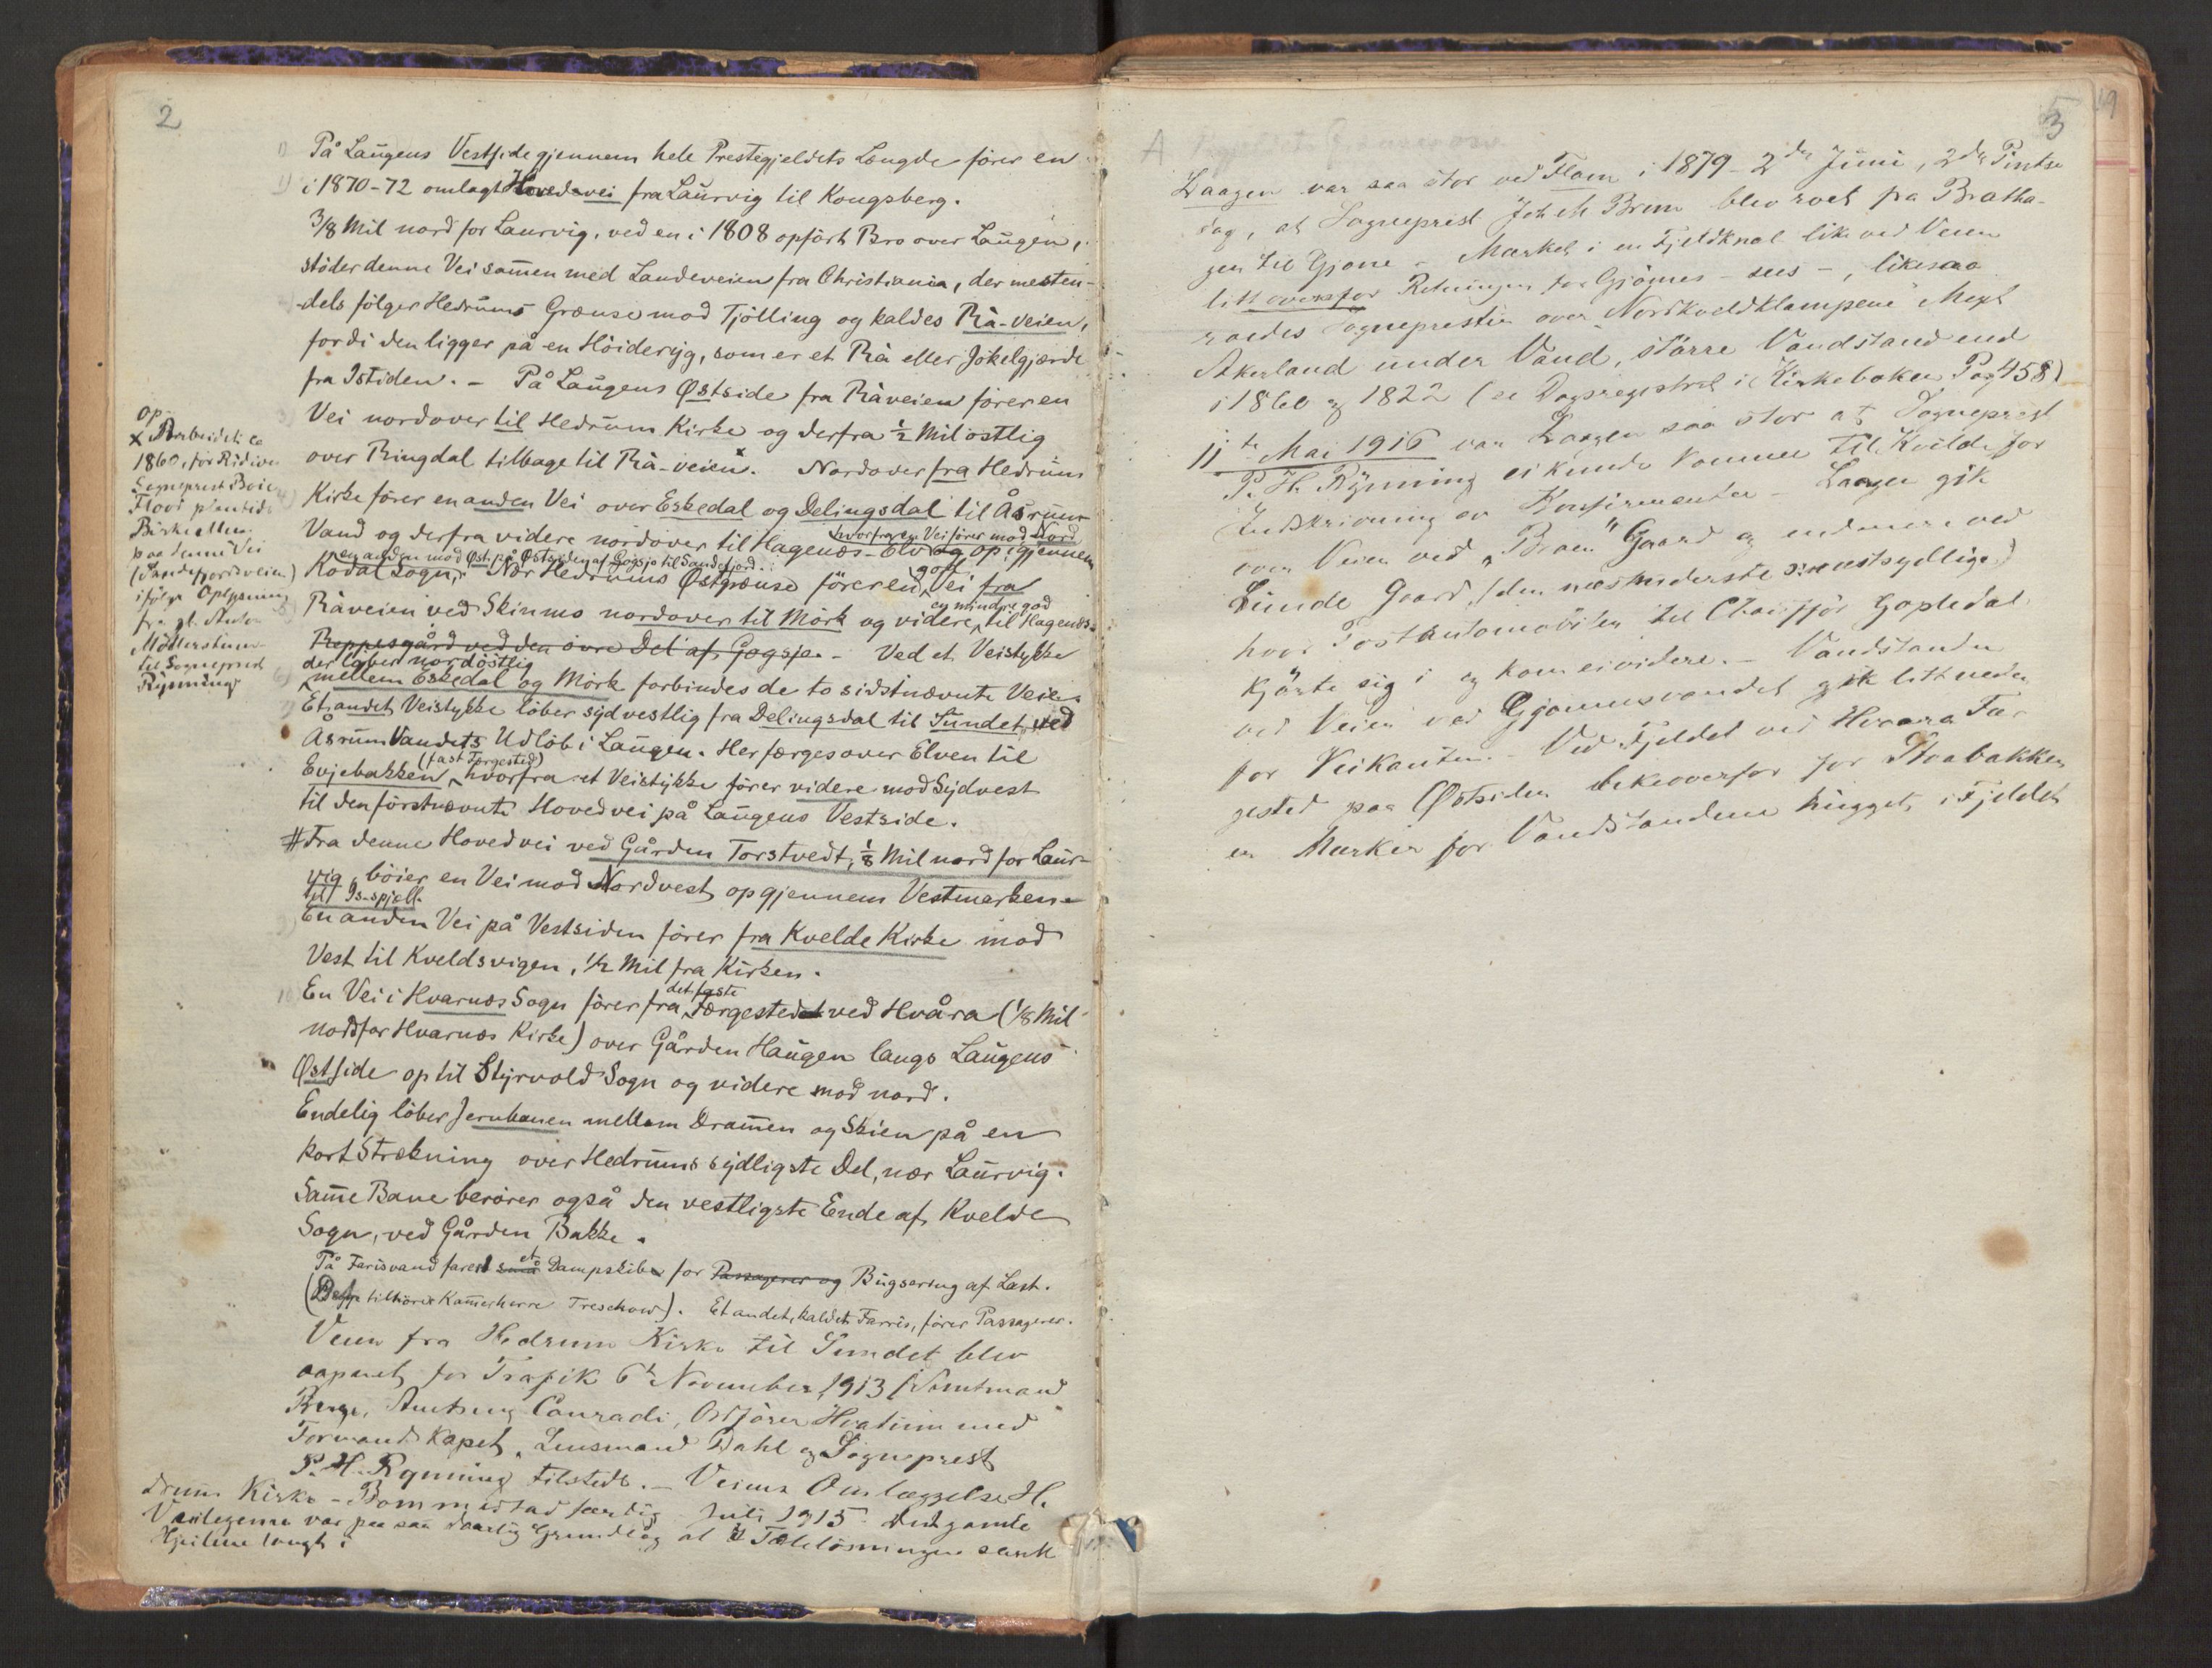 2
På Laugens Vestside gjennem hele Prestegjeldets Længde fører en
i 1870-72 omlagt Hovedvei fra Laurvig til Kongsberg.
3/8 Mil nord for Laurvig, ved en i 1808 opført Bro over Laugen,
støder denne Vei sam̅en med Landeveien fra Christiania, der mesten-
dels følger Hedrums Grænse mod Tjølling og kaldes Rå-veien,
fordi den ligger på en Höideryg, som er et Rå eller Jøkelgjærde
fra Istiden. - På Laugens Østside fra Råveien fører en
Vei nordover til Hedrum Kirke og derfra 1/2 Mil östlig
over Ringdal tilbage til Rå-veien x. Nordover fra Hedrum
Kirke fører en anden Vei over Eskedal og Delingsdal til Åsrum-
Vand og derfra videre nordover til Hagenæs-Elv og op igjennem
hvorfra en Vei fører mod Nord
en anden mod Øst på Østsiden af Gogsjø til Sandefjord.
Kodal Sogn. Nær Hedrums Østgrænse fører en god Vei fra
Råveien ved Skinmo nordover til Mørk og videre en mindre god til Hagenæs.
Preppesgård ved den øvre Del af Gogsjø. - Ved et Veistykke
der løber nordøstlig
mellem Eskedal og Mørk forbindes de to sidstnævnte Veie.
Et andet Veistykke løber sydvestlig fra Delingsdal til Sundet ved
Åsrum Vandets Udløb i Laugen. Her færges over Elven til
Evjebakken (fast Færgested), hvorfra et Veistykke fører videre mod Sydvest
til den førstnævnte Hovedvei på Laugens Vestside.
# Fra denne Hovedvei ved Gården Torstvedt, 1/8 Mil nord for Laur-
vig, bøier en Vei mod Nordvest op gjennem Vestmarken
til Is-spjell.
En anden Vei på Vestsiden fører fra Kvelde Kirke mod
Vest til Kveldsvigen, 1/2 Mil fra Kirken.
En Vei i Hvarnæs Sogn fører fra det faste Færgested ved Hvåra (1/8 Mil
nord for Hvarnæs Kirke) over Gården Haugen langs Laugens
Østside op til Styrvold Sogn og videre mod nord.
Endelig løber Jernbanen mellem Dram̅en og Skien på en
kort Strækning over Hedrums sydligste Del, nær Laurvig.
Sam̅e Bane berører også den vestligste Ende af Kvelde
Sogn, ved Gården Bakke.
På Farisvand farer små et Dampskibe for Passagerer og Bugsering af Last.
(tilhører Kam̅erherre Treschow). Et andet, kaldet Farris, fører Passagerer.
Veien fra Hedrum Kirke til Sundet blev
aapnet for Trafik 6te November 1913 (Amtmand
Conradi, Ordfører Hvatum med
Formandskapet, Lensmand Dahl og Sogneprest
P. H. Rynning tilstede. - Veiens Omlæggelse He-
drum Kirke - Bommestad færdig Juli 1915. Det gamle
var paa saa daarlig Grundlag at i Teleløsningen sank
Hjulene langt.
Op-
x Arbeidet ca
1860, før Ridevei
Sogneprest Boie
Flood plantede
Birkealleen
paa denne Vei
(Sandefjordsveien)
ifølge Oplysning
fra gl. Anton
Møllerstuen
til Sogneprest
Rynning
19
3
A
Laagen var saa stor ved Flom i 1879 - 2den Juni, 2den Pintse
dag, at Sogneprest Joh M Brun blev roet fra Bratha-
gen til Gjone - Merket i en Fjeldknat like ved Veien
litt ovenfor Retningen for Gjønnes - sees -, likesaa
roedes Sognepresten over "Nordkveldklampene" Meget
Akerland under Vand, større Vandstand end
i 1860 og 1822 (se Dagsregistret i Kirkeboken Pag 458)
11te Mai 1916 var Laagen saa stor at Sogneprest
P. H. Rynning ei kunde komme til Kvelde for
Indskrivning av Konfirmanter - Laagen gik
over Veien ved "Broen" Gaard og endmere ved
Lunde Gaard, (den næstnederste o: nestsydlige)
hvor Postautomobilen til Chauffør Gopledal
kjørte sig i og kom ei videre. - Vandstanden
ved Veien ved Gjønnesvandet gik litt neden
for Veikanten. - Ved Fjeldet ved Hvaara Fær
gested paa Østsiden likeoverfor for Hvabakken
er Merker for Vandstandene hugget i Fjeldet